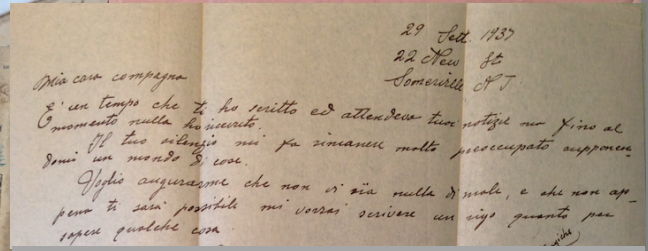 29 Sett. 1937
22 New St
Somerville N J.
Mia cara compagna
E' un tempo che ti ho scritto ed attendevo tue notizie ma fino al
momento nulla ho
Il tuo silenzio mi fa rimanere molto preoccupato supponen-
domi un mondo di cose.
Voglio augurarme che non vi sia nulla di male, e che non ap-
pena ti sarà possibile mi vorrai scrivere un rigo quanto per
sapere qualche cosa